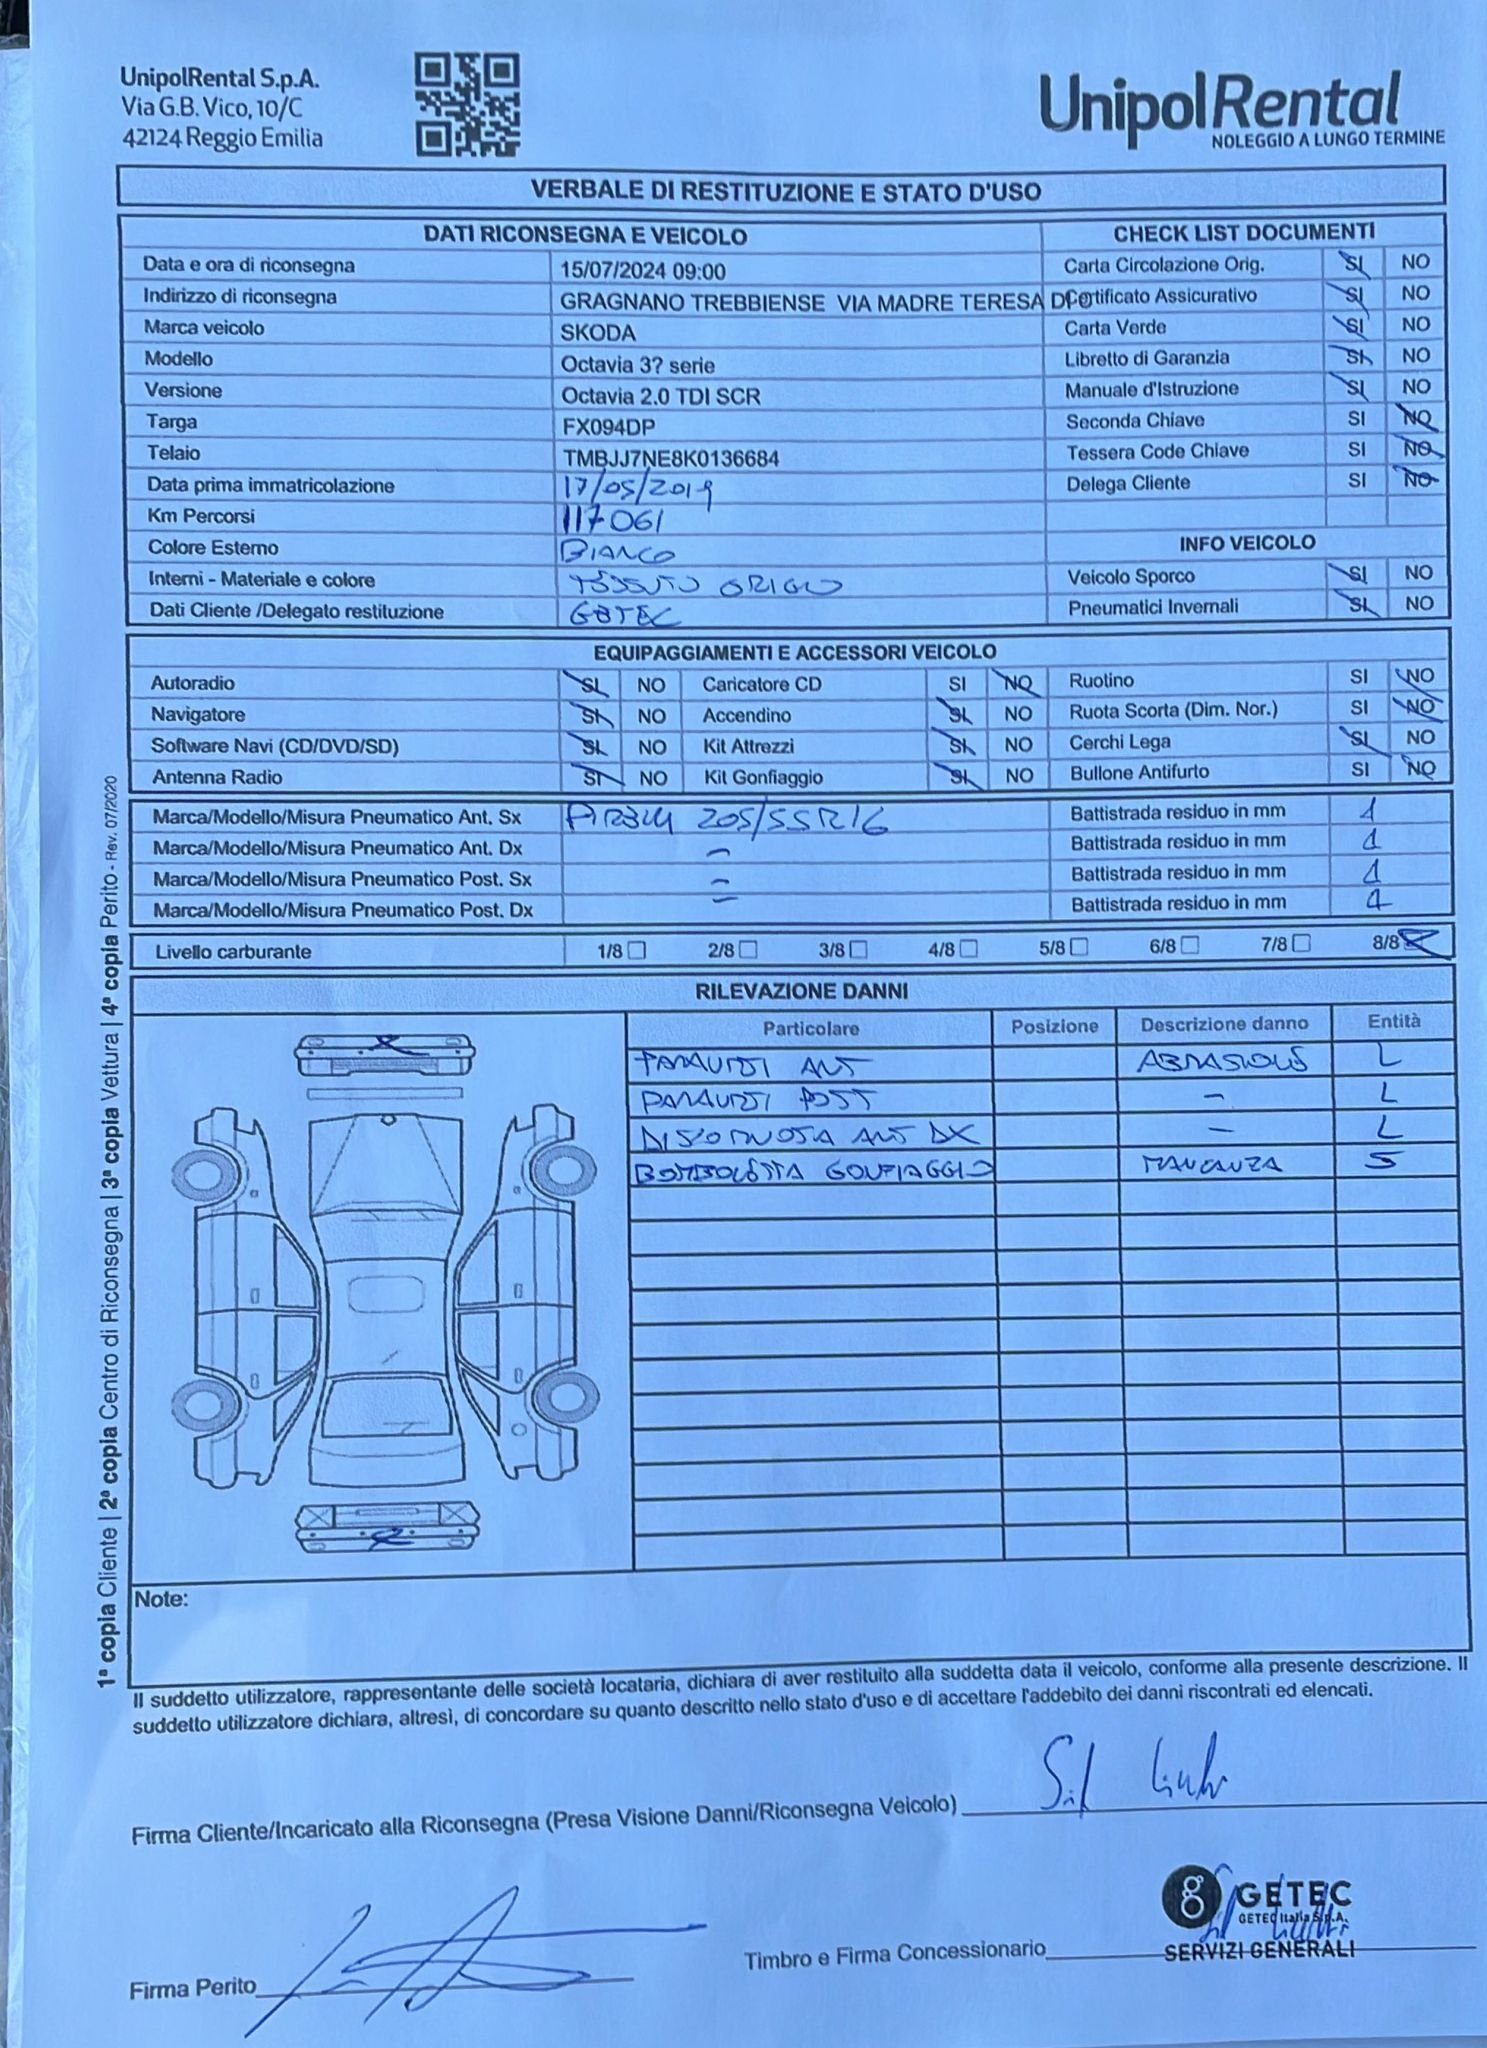 UnipolRental S.p.A.
Via G.B. Vico, 10/C
42124 Reggio Emilia
UnipolRental
NOLEGGIO A LUNGO TERMINE
VERBALE DI RESTITUZIONE E STATO D'USO
DATI RICONSEGNA E VEICOLO CHECK LIST DOCUMENTI
Data e ora di riconsegna 15/07/2024 09:00 Carta Circolazione Orig. SI NO
Indirizzo di riconsegna GRAGNANO TREBBIENSE VIA MADRE TERESA Certificato Assicurativo SI NO
Marca veicolo SKODA Carta Verde SI NO
Modello Octavia 3? serie Libretto di Garanzia SI NO
Versione Octavia 2.0 TDI SCR Manuale d'Istruzione SI NO
Targa FX094DP Seconda Chiave SI NO
Telaio TMBJJ7NE8K0136684 Tessera Code Chiave SI NO
Data prima immatricolazione 17/05/2019 Delega Cliente SI NO
Km Percorsi 117061
Colore Esterno BIANCO INFO VEICOLO
Interni - Materiale e colore TESSUTO GRIGIO Veicolo Sporco SI NO
Dati Cliente /Delegato restituzione GETEC Pneumatici Invernali SI NO
EQUIPAGGIAMENTI E ACCESSORI VEICOLO
Autoradio SI NO Caricatore CD SI NO Ruotino SI NO
Navigatore SI NO Accendino SI NO Ruota Scorta (Dim. Nor.) SI NO
Software Navi (CD/DVD/SD) SI NO Kit Attrezzi SI NO Cerchi Lega SI NO
Antenna Radio SI NO Kit Gonfiaggio SI NO Bullone Antifurto SI NO
Marca/Modello/Misura Pneumatico Ant. Sx PIRELLI 205/55R16 Battistrada residuo in mm 1
Marca/Modello/Misura Pneumatico Ant. Dx - Battistrada residuo in mm 1
Marca/Modello/Misura Pneumatico Post. Sx - Battistrada residuo in mm 1
Marca/Modello/Misura Pneumatico Post. Dx - Battistrada residuo in mm 1
Livello carburante 1/8 2/8 3/8 4/8 5/8 6/8 7/8 8/8
RILEVAZIONE DANNI
Particolare Posizione Descrizione danno Entità
PARAURTI ANT ABRASIONE L
PARAURTI POST - L
DISCO RUOTA ANT DX - L
BOMBOLETTA GONFIAGGIO MANCANZA S
Note:
Il suddetto utilizzatore, rappresentante delle società locataria, dichiara di aver restituito alla suddetta data il veicolo, conforme alla presente descrizione. Il
suddetto utilizzatore dichiara, altresì, di concordare su quanto descritto nello stato d'uso e di accettare l'addebito dei danni riscontrati ed elencati.
Firma Cliente/Incaricato alla Riconsegna (Presa Visione Danni/Riconsegna Veicolo)
GETEC
GETEC Italia S.p.A.
SERVIZI GENERALI
Timbro e Firma Concessionario
Firma Perito
1ª copia Cliente | 2ª copia Centro di Riconsegna | 3ª copia Vettura | 4ª copia Perito - Rev. 07/2020